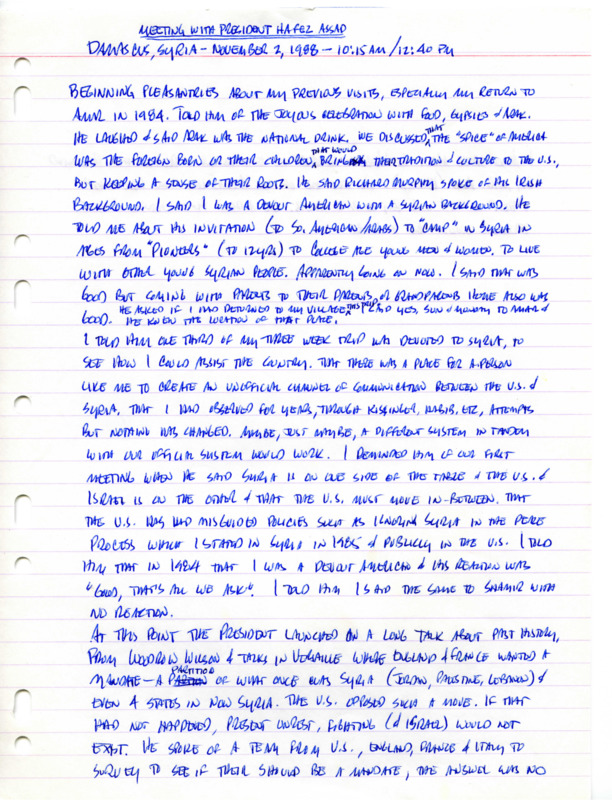 MEETING WITH PRESIDENT HAFEZ ASSAD
DAMASCUS, SYRIA - NOVEMBER 2, 1988 - 10:15 AM/12:40 PM
BEGINNING PLEASANTRIES ABOUT MY PREVIOUS VISITS, ESPECIALLY MY RETURN TO
IN 1984. TOLD HIM OF THE JOYOUS CELEBRATION WITH FOOD, GYPSIES & ARAK.
HE LAUGHED & SAID ARAK WAS THE NATIONAL DRINK. WE DISCUSSED THAT THE "SPICE" OF AMERICA
WAS THE FOREIGN BORN OR THEIR CHILDREN THAT WOULD BRING THEIR TRADITION & CULTURE TO THE U.S.,
BUT KEEPING A SENSE OF THEIR ROOTS. HE SAID RICHARD MURPHY SPOKE OF HIS IRISH
BACKGROUND. I SAID I WAS A DEVOUT AMERICAN WITH A SYRIAN BACKGROUND. HE
TOLD ME ABOUT HIS INVITATION (TO SO. AMERICAN/ARABS) TO "CAMP" IN SYRIA IN
AGES FROM "PIONEERS" (TO 12 YRS) TO COLLEGE AGE YOUNG MEN & WOMEN. TO LIVE
WITH OTHER YOUNG SYRIAN PEOPLE. APPARENTLY GOING ON NOW. I SAID THAT WAS
GOOD BUT COMING WITH PARENTS TO THEIR PARENTS OR GRANDPARENTS HOME ALSO WAS
GOOD. HE ASKED IF I HAD RETURNED TO MY VILLAGE THIS TRIP. I SAID YES, SUN & MONDAY TO &
HE KNEW THE LOCATION OF THAT PLACE.
I TOLD HIM ONE THIRD OF MY THREE WEEK TRIP WAS DEVOTED TO SYRIA, TO
SEE HOW I COULD ASSIST THE COUNTRY. THAT THERE WAS A PLACE FOR A PERSON
LIKE ME TO CREATE AN UNOFFICIAL CHANNEL OF COMMUNICATION BETWEEN THE U.S. &
SYRIA. THAT I HAD OBSERVED FOR YEARS, THROUGH KISSINGER, HABIB, ETC, ATTEMPTS
BUT NOTHING HAS CHANGED. MAYBE, JUST MAYBE, A DIFFERENT SYSTEM IN TANDEM
WITH OUR OFFICIAL SYSTEM WOULD WORK. I REMINDED HIM OF OUR FIRST
MEETING WHEN HE SAID SYRIA IS ON ONE SIDE OF THE TABLE & THE U.S. &
ISRAEL IS ON THE OTHER & THAT THE U.S. MUST MOVE IN-BETWEEN. THAT
THE U.S. HAS HAD MISGUIDED POLICIES SUCH AS IGNORING SYRIA IN THE PEACE
PROCESS WHICH I STATED IN SYRIA IN 1985 & PUBLICLY IN THE U.S. I TOLD
HIM THAT IN 1984 THAT I WAS A DEVOUT AMERICAN & HIS REACTION WAS
"GOOD, THAT'S ALL WE ASK". I TOLD HIM I SAID THE SAME TO SHAMIR WITH
NO REACTION.
AT THIS POINT THE PRESIDENT LAUNCHED ON A LONG TALK ABOUT PAST HISTORY,
FROM WOODROW WILSON & TALKS IN VERSAILLE WHERE ENGLAND & FRANCE WANTED A
MANDATE - A PARTITION OF WHAT ONCE WAS SYRIA (JORDAN, PALESTINE, LEBANON) &
EVEN 4 STATES IN NOW SYRIA. THE U.S. OPPOSED SUCH A MOVE. IF THAT
HAD NOT HAPPENED, PRESENT UNREST, FIGHTING (& ISRAEL) WOULD NOT
EXIST. HE SPOKE OF A TEAM FROM U.S., ENGLAND, FRANCE & ITALY TO
SURVEY TO SEE IF THEIR SHOULD BE A MANDATE, THE ANSWER WAS NO